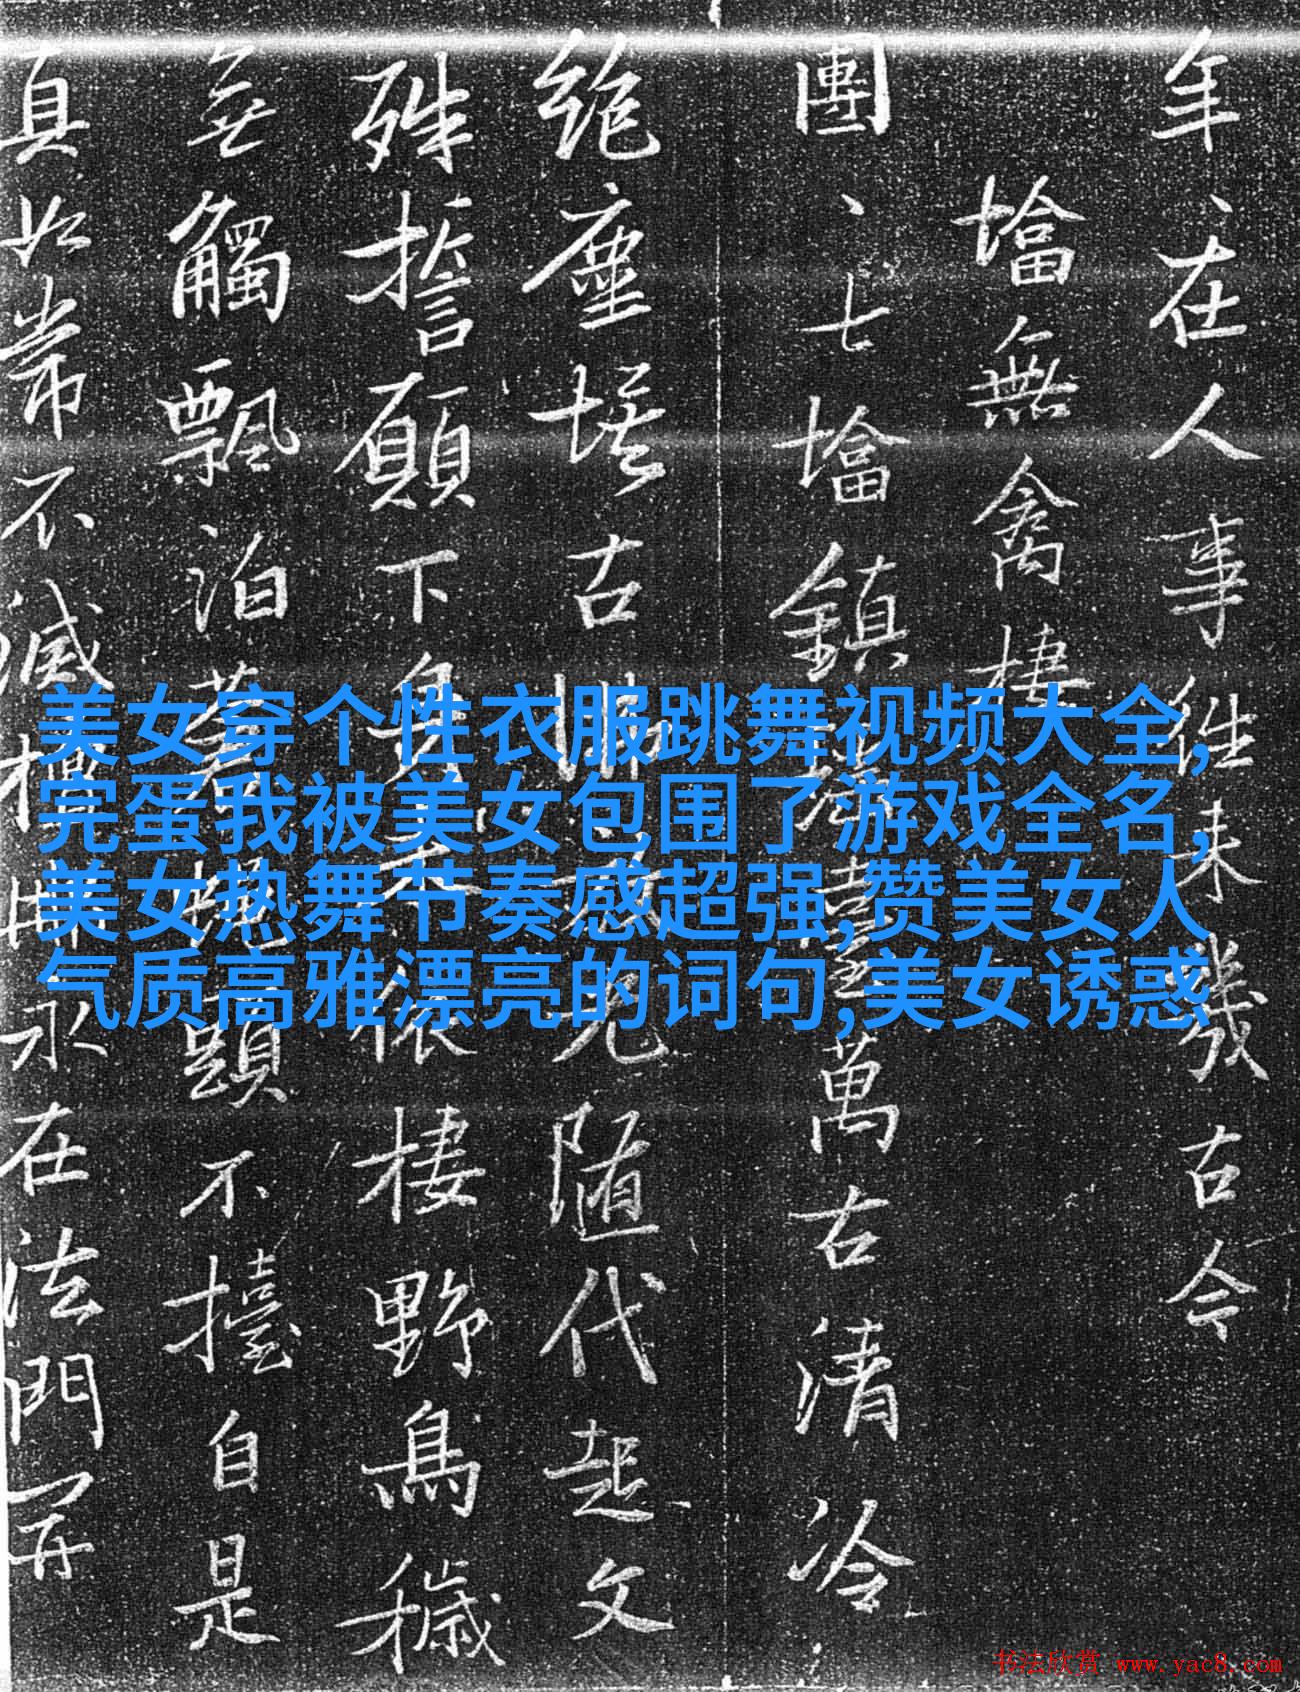 年〻在人事往来幾古今
墖無禽棲
團〻七墖鎮
萬古清冷
絶塵埃古
随代起文
殊誓願下
棲野鳥穢
無觸飄泊
題不擡自是
真如常不滅
永在法門開
美女穿个性衣服跳舞视频大全,
完蛋我被美女包围了游戏全名,
美女热舞节奏感超强,赞美女人
气质高雅漂亮的词句,美女诱惑
书法欣赏 www.yac8.com